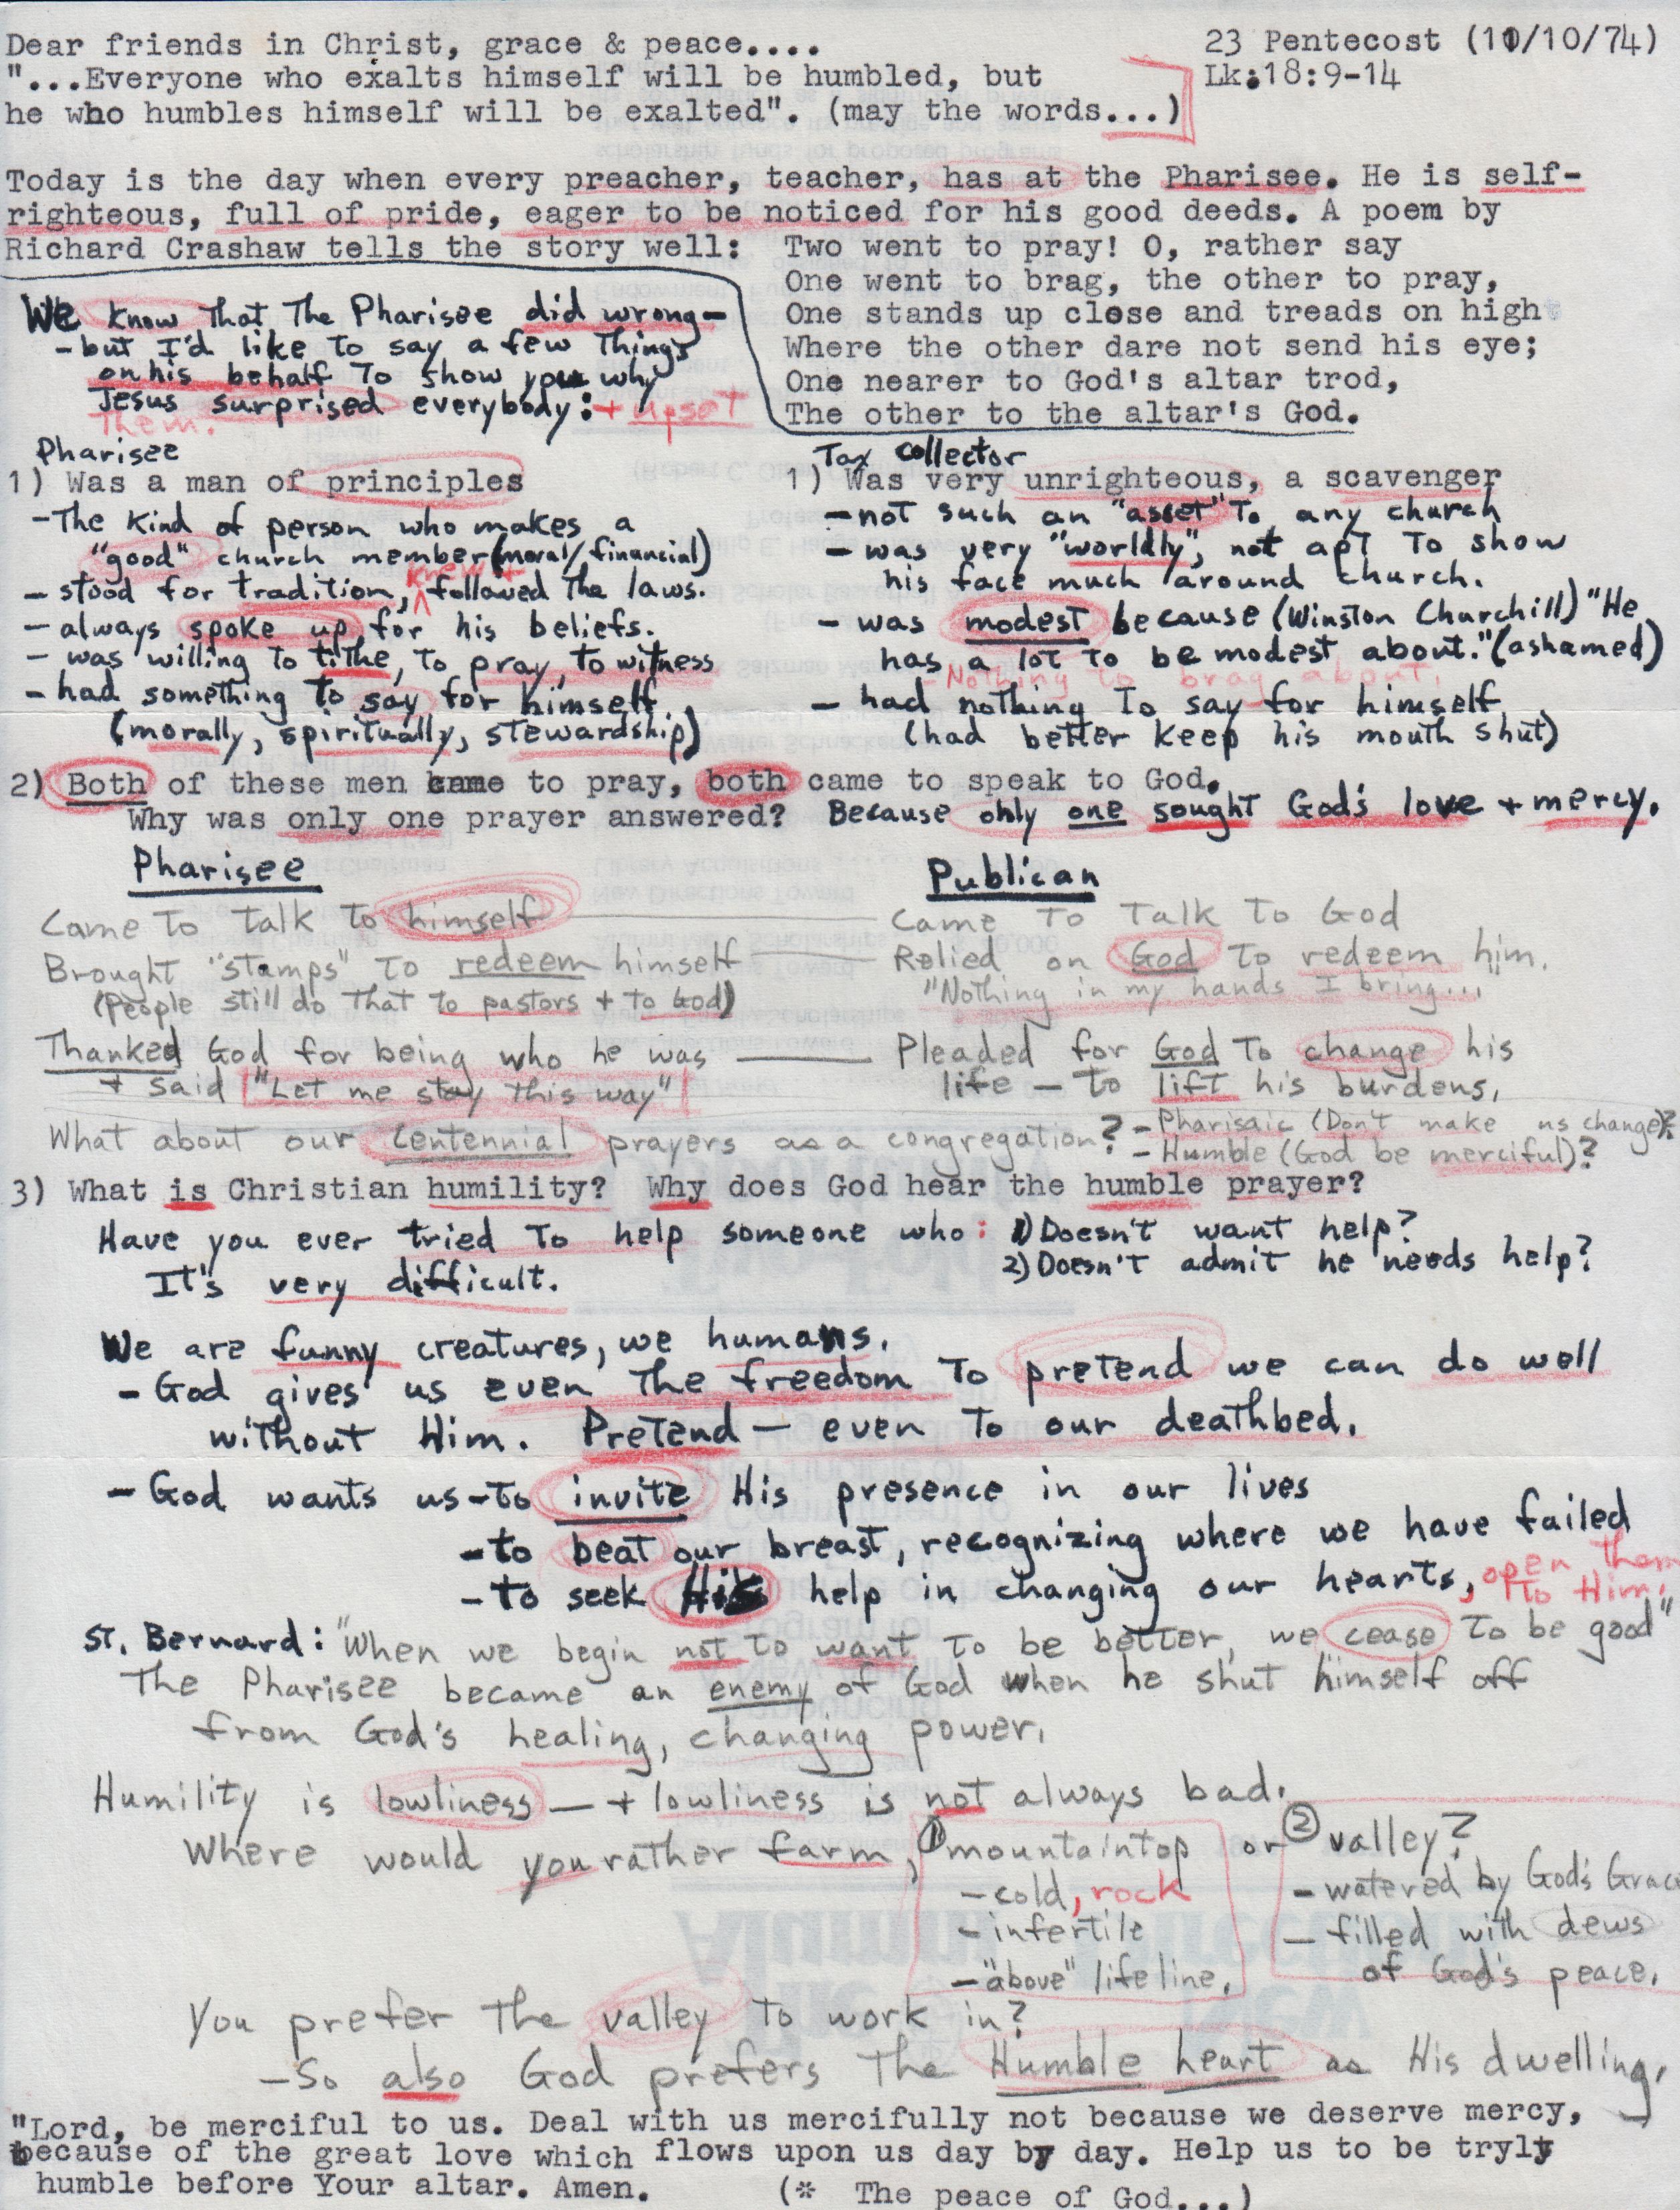 Dear friends in Christ, grace & peace....
23 Pentecost (11/10/74)
"...Everyone who exalts himself will be humbled, but
Lk:18:9-14
he who humbles himself will be exalted". (may the words...)
Today is the day when every preacher, teacher, has at the Pharisee. He is self-
righteous, full of pride, eager to be noticed for his good deeds. A poem by
Richard Crashaw tells the story well:
Two went to pray! O, rather say
One went to brag, the other to pray,
One stands up close and treads on high
Where the other dare not send his eye;
One nearer to God's altar trod,
The other to the altar's God.
We know that the Pharisee did wrong-
- but I'd like to say a few things
on his behalf to show you why
Jesus surprised everybody: + upset
them.
Pharisee
1) Was a man of principles
- The kind of person who makes a
"good" church member (moral/financial)
- stood for tradition, knew + followed the laws.
- always spoke up for his beliefs.
- was willing to tithe, to pray, to witness
- had something to say for himself
(morally, spiritually, stewardship)
Tax collector
1) Was very unrighteous, a scavenger
- not such an "asset" to any church
- was very "worldly", not apt to show
his face much around church.
- was modest because (Winston Churchill) "He
has a lot to be modest about." (ashamed)
- Nothing to brag about.
- had nothing to say for himself
(had better keep his mouth shut)
2) Both of these men came to pray, both came to speak to God.
Why was only one prayer answered? Because only one sought God's love + mercy.
Pharisee
Publican
Came to talk to himself
Came to talk to God
Brought "stamps" to redeem himself
Relied on God to redeem him.
(People still do that to pastors + to God)
"Nothing in my hands I bring...
Thanked God for being who he was
Pleaded for God to change his
+ said "Let me stay this way"
life - to lift his burdens,
What about our centennial prayers as a congregation? - Pharisaic (Don't make us change)?
- Humble (God be merciful)?
3) What is Christian humility? Why does God hear the humble prayer?
Have you ever tried to help someone who: 1) Doesn't want help?
2) Doesn't admit he needs help?
It's very difficult.
We are funny creatures, we humans.
- God gives us even the freedom to pretend we can do well
without Him. Pretend - even to our deathbed.
- God wants us - to invite His presence in our lives
- to beat our breast, recognizing where we have failed
- to seek His help in changing our hearts, open them
to Him.
St. Bernard: "When we begin not to want to be better, we cease to be good"
The Pharisee became an enemy of God when he shut himself off
from God's healing, changing power.
Humility is lowliness - + lowliness is not always bad.
Where would you rather farm, 1 mountaintop or 2 valley?
- cold, rock
- infertile
- "above" life line.
- watered by God's Grace
- filled with dews
of God's peace.
You prefer the valley to work in?
- So also God prefers the Humble heart as His dwelling.
"Lord, be merciful to us. Deal with us mercifully not because we deserve mercy,
because of the great love which flows upon us day by day. Help us to be tryly
humble before Your altar. Amen. (* The peace of God...)